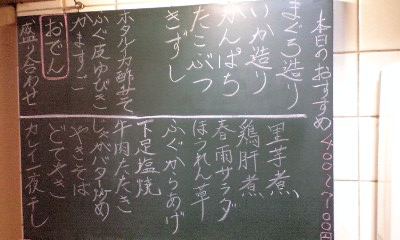 本日のおすすめ 400〜700円
まぐろ造り
いか造り
かんぱち
たこぶつ
きずし
ホタルイカ酢みそ
ふぐ皮ゆびき
かますご
おでん
盛り合わせ
里芋煮
鶏肝煮
春雨サラダ
ほうれん草
ふぐからあげ
下足塩焼
牛肉たたき
じゃがバタ炒め
やきそば
どてやき
カレイ一夜干し